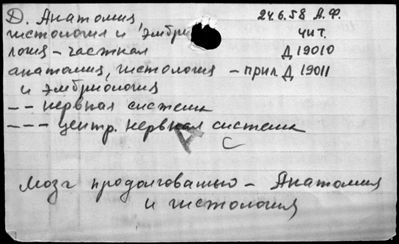 Д. Анатомия 24.6.58 А.Ф.
гистология и эмбрио чит.
логия – частная Д 19010
анатомия, гистология – прил Д 19011
и эмбриология
– – нервная система
– – – центр. нервная система
А С
Мозг продолговатый – Анатомия
и гистология